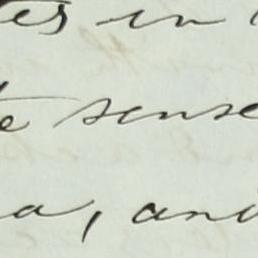 es in
te sense
a, and